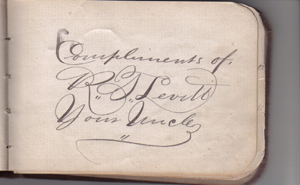 Compliments of
R. J. Levitt
Your Uncle